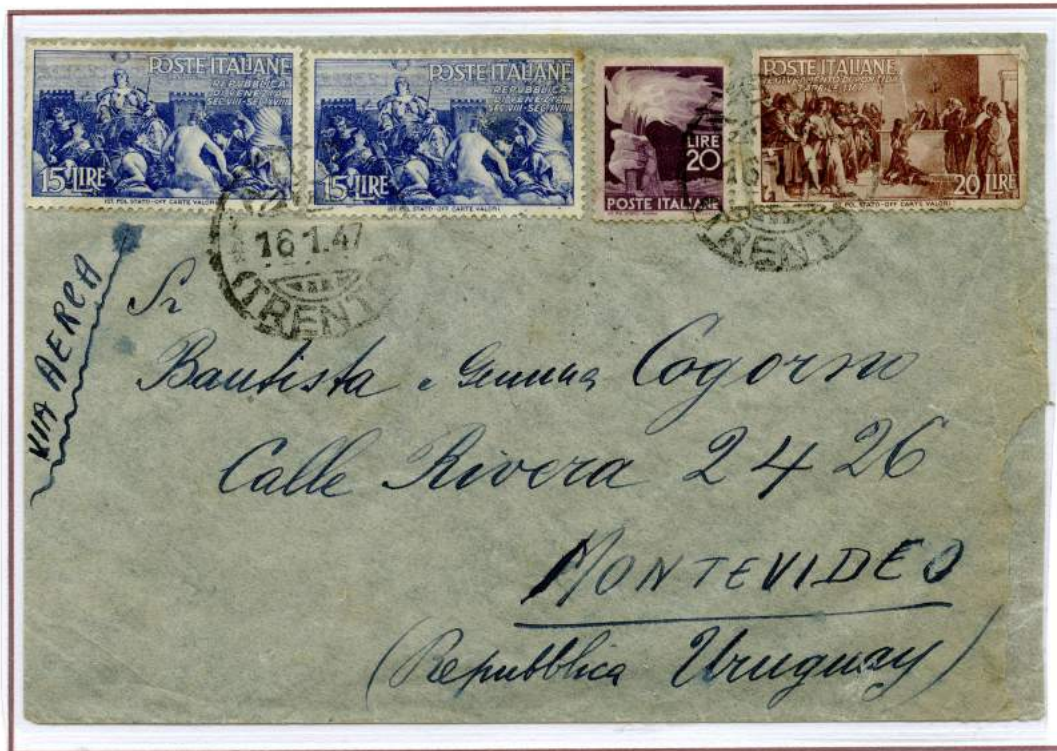 POSTE ITALIANE
REPUBBLICA
DI VENEZIA
SEC.VIII-SEC.XVIII
15 LIRE
IST. POL. STATO-OFF. CARTE VALORI
POSTE ITALIANE
REPUBBLICA
DI VENEZIA
SEC.VIII-SEC.XVIII
15 LIRE
IST. POL. STATO-OFF. CARTE VALORI
LIRE
20
POSTE ITALIANE
POSTE ITALIANE
GIURAMENTO DI PONTIDA
7 APRILE 1167
20 LIRE
IST. POL. STATO-OFF. CARTE VALORI
16.1.47
(TRENTO)
16
(TRENTO)
VIA AEREA
Sr
Bautista e Gemma Cogorno
Calle Rivera 2426
MONTEVIDEO
(Repubblica Uruguay)